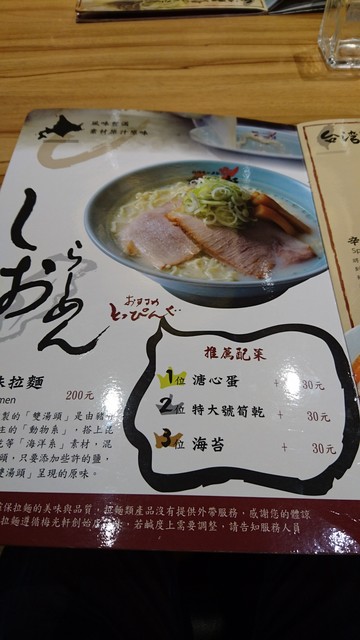 風味智滴
素材原汁原味
しお
らーめん
おすすめ
とっぴんぐ
推薦配菜
1位 溏心蛋 + 30元
2位 特大號筍乾 + 30元
3位 海苔 + 30元
味拉麵
men 200元
製的「雙湯頭」是由豬
主的「動物系」，搭上昆
花等「海洋系」素材，混
頭，只要添加些許的鹽，
雙湯頭」呈現的原味。
保拉麵的美味與品質，拉麵類產品沒有提供外帶服務，感謝您的體諒
拉麵遵循梅光軒創始店 ，若鹹度上需要調整，請告知服務人員
台湾